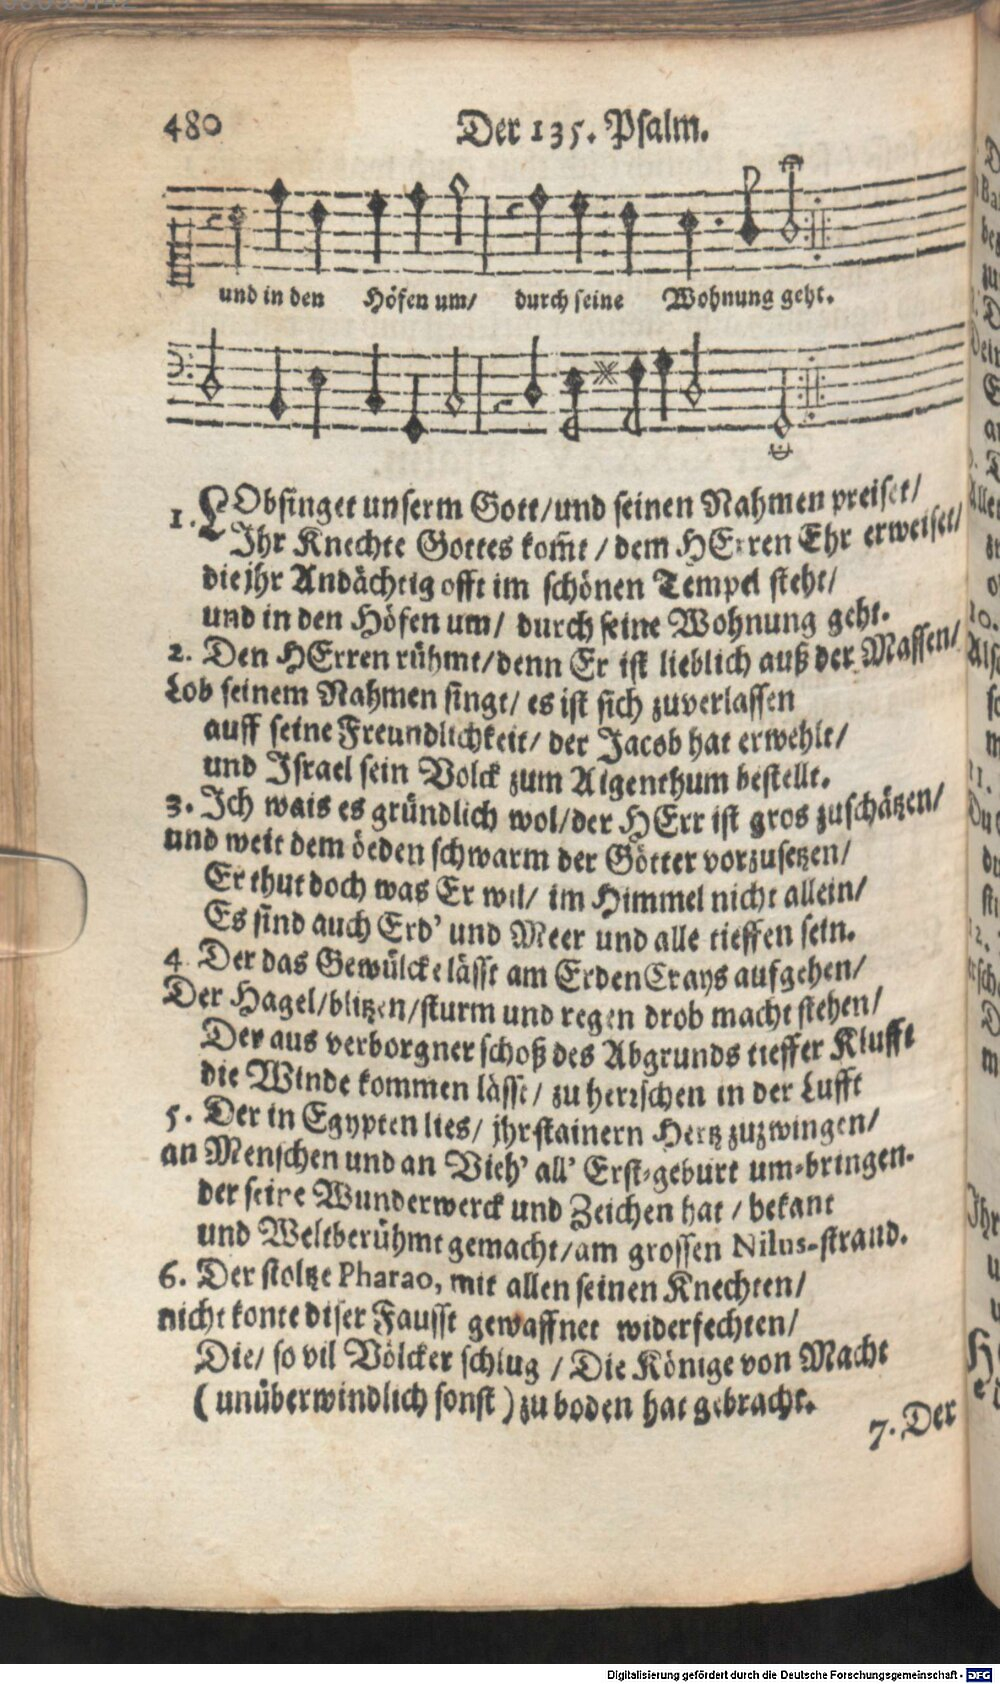 480
Der 135. Psalm.
und in den Höfen um/ durch seine Wohnung geht.
1. LObsinget unserm Gott/und seinen Nahmen preiset/
Ihr Knechte Gottes kom̃t / dem HErren Ehr erweiset/
die jhr Andächtig offt im schönen Tempel steht/
und in den Höfen um/ durch seine Wohnung geht.
2. Den HErren rühmt/denn Er ist lieblich auß der Massen/
Lob seinem Nahmen singt/ es ist sich zuverlassen
auff seine Freundlichkeit/ der Jacob hat erwehlt/
und Israel sein Volck zum Aigenthum bestellt.
3. Ich wais es gründlich wol/der HErr ist gros zuschätzen/
und weit dem öeden schwarm der Götter vorzusetzen/
Er thut doch was Er wil/ im Himmel nicht allein/
Es sind auch Erd' und Meer und alle tieffen sein.
4 Der das Gewülcke lässt am ErdenCrays aufgehen/
Der Hagel/blitzen/sturm und regen drob macht stehen/
Der aus verborgner schoß des Abgrunds tieffer Klufft
die Winde kommen lässt/ zu herrschen in der Lufft
5. Der in Egypten lies/ jhr stainern Hertz zuzwingen/
an Menschen und an Vieh' all' Erst-geburt um-bringen.
der seine Wunderwerck und Zeichen hat / bekant
und Weltberühmt gemacht/am grossen Nilus-strand.
6. Der stoltze Pharao, mit allen seinen Knechten/
nicht konte diser Fausst gewaffnet widerfechten/
Die/ so vil Völcker schlug / Die Könige von Macht
(unüberwindlich sonst) zu boden hat gebracht.
7. Der
Digitalisierung gefördert durch die Deutsche Forschungsgemeinschaft - DFG